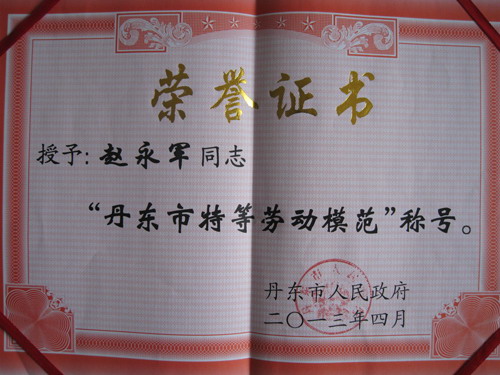 荣誉证书
授予:赵永军同志
“丹东市特等劳动模范”称号。
丹东市人民政府
二〇一三年四月